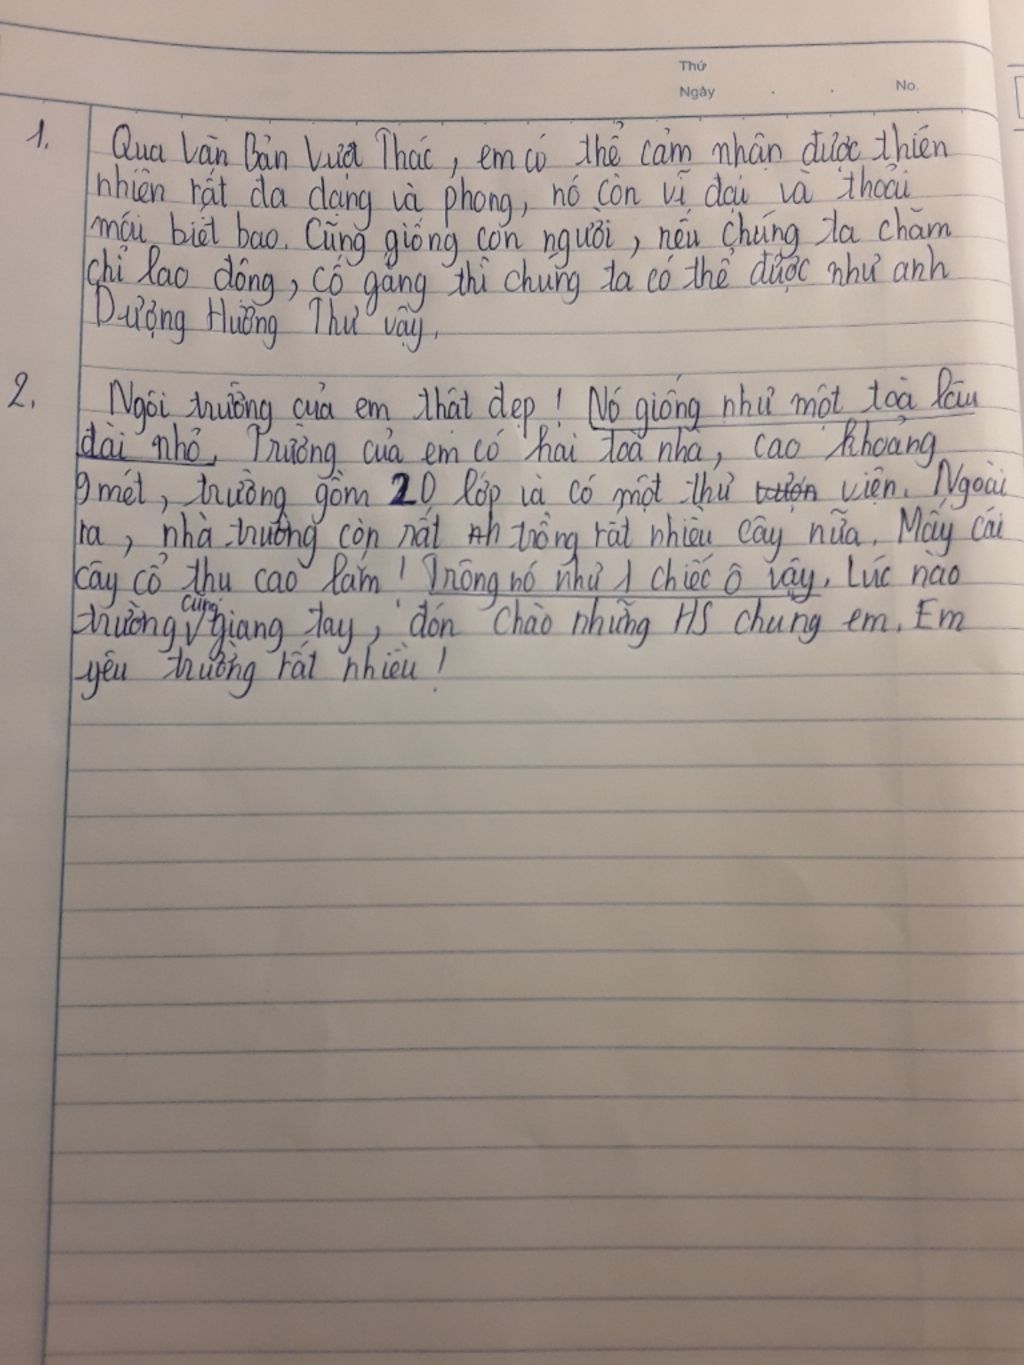 Thứ
Ngày . . No.
1. Qua Văn Bản Vượt Thác, em có thể cảm nhận được thiên
nhiên rất đa dạng và phong, nó còn vĩ đại và thoải
mái biết bao. Cũng giống con người, nếu chúng ta chăm
chỉ lao động, cố gắng thì chúng ta có thể được như anh
Dượng Hương Thư vậy.
2. Ngôi trường của em thật đẹp! Nó giống như một toà lâu
đài nhỏ. Trường của em có hai toà nhà, cao khoảng
9 mét, trường gồm 20 lớp và có một thư viện. Ngoài
ra, nhà trường còn rất trồng rất nhiều cây nữa. Mấy cái
cây cổ thụ cao lắm! Trông nó như 1 chiếc ô vậy. Lúc nào
trường cũng giang tay, đón chào những HS chúng em. Em
yêu trường rất nhiều!